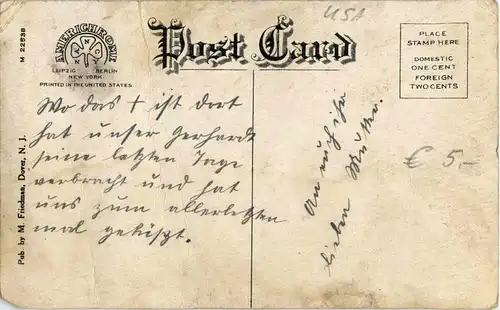 USA
M 22538
AMERICHROME
LEIPZIG BERLIN
NEW YORK
PRINTED IN THE UNITED STATES
Post Card
PLACE
STAMP HERE
DOMESTIC
ONE CENT
FOREIGN
TWO CENTS
Wo das + ist dort
hat unser Gerhardt
seine letzten Tage
verbracht und hat
uns zum allerletzten
mal geküßt.
An euch ihr
lieben
€ 5-
Pub. by M. Friedman, Dover, N. J.